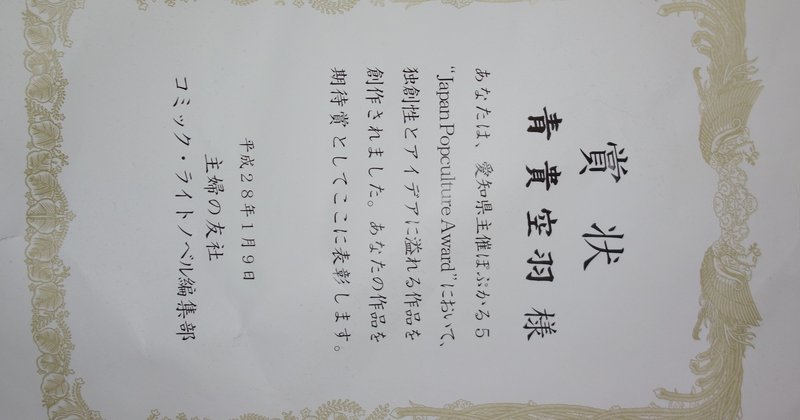 賞状
青貴空羽 様
あなたは、愛知県主催ぽぷかる5
"Japan Popculture Award"において、
独創性とアイデアに溢れる作品を
創作されました。あなたの作品を
期待賞としてここに表彰します。
平成28年1月9日
主婦の友社
コミック・ライトノベル編集部